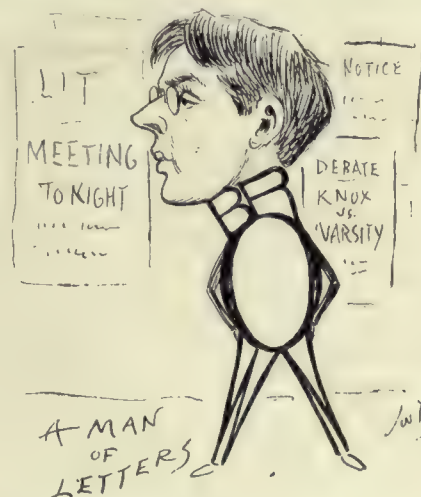 LIT
MEETING
TO NIGHT
NOTICE
DEBATE
KNOX
VS.
'VARSITY
A MAN
OF
LETTERS